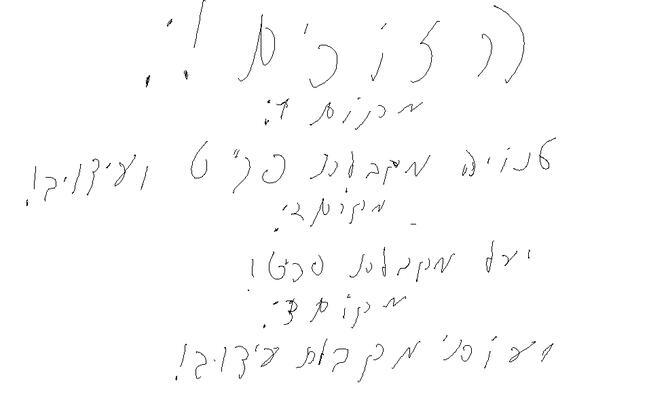 הזוכים!:
מקום 1:
מקבלת פרס ועידוד!
מקום 2:
יעל מקבלת פרס!
מקום 3:
מקבלת עידוד!